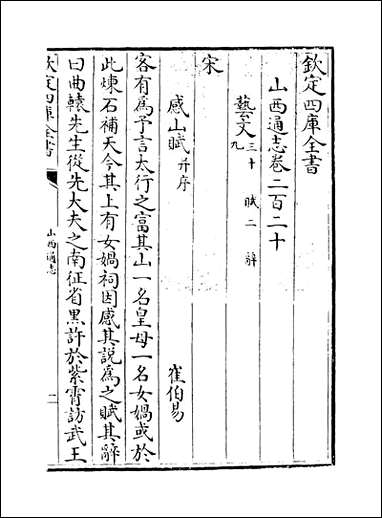 欽定四庫全書
山西通志卷二百二十
藝文三十九 賦二 辭
宋
感山賦并序 崔伯易
客有為予言太行之富其山一名皇母一名女媧或於
此煉石補天今其上有女媧祠因感其說為之賦其辭
曰曲轅先生從先大夫之南征省黑許於紫霄訪武王
欽定四庫全書
山西通志
一